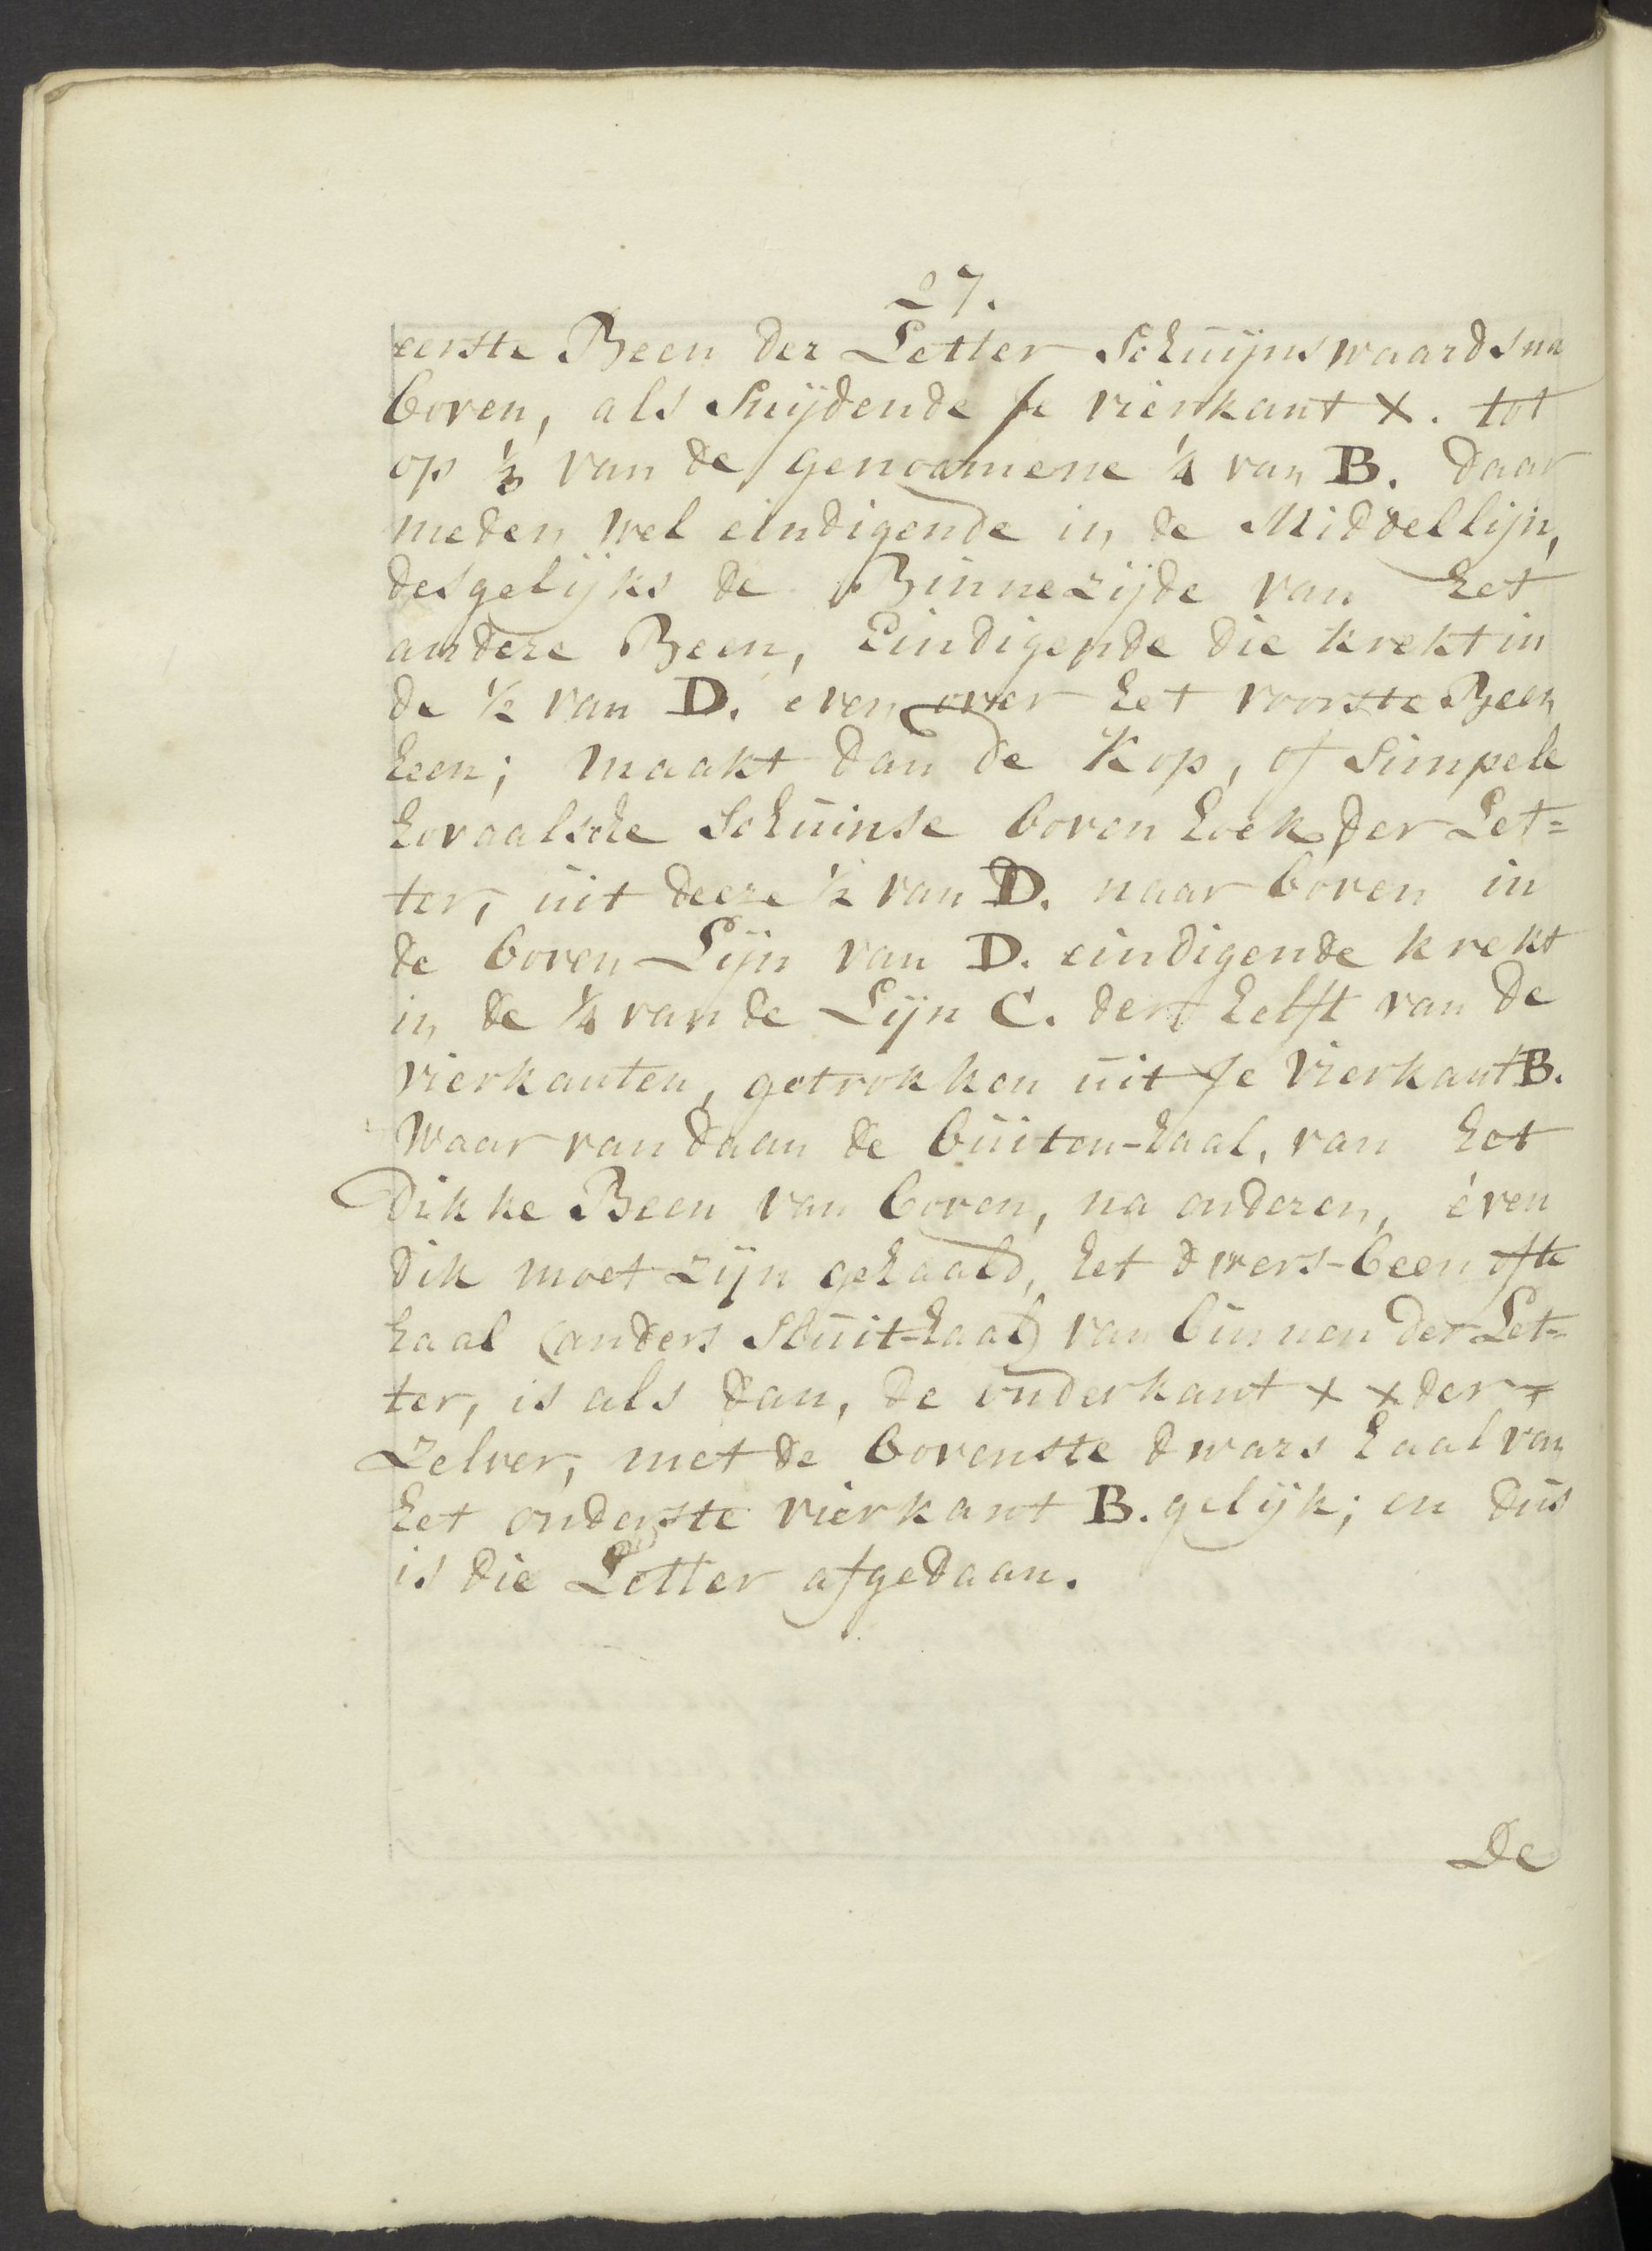 27.
eerste Been der Letter Schuijnswaards na
boven, als Snijdende je vierkant X. tot
op ⅓ van de genoamene ¼ van B. daar
meden wel eindigende in de Middellijn,
desgelijks de Binnezijde van het
andere Been, Eindigende die krekt in
de ½ van D. even over het voorste Been
heen; maakt dan de Kop, of Simpele
hovaalsche Schuinse boven hoek der Let=
ter, uit deeze ½ van D. naar boven in
de boven Lijn van D. eindigende krekt
in de ¼ van de Lijn C. der helft van de
vierkanten, getrokken uit je vierkant B.
waar vandaan de buiten-haal, van het
Dikke Been van boven, na onderen, éven
dik moet zijn gehaald, het dwers-been ofte
haal (anders Sluit-haal) van binnen der Let=
ter, is als dan, de onderkant x x der=
zelver, met de bovenste dwars haal van
het onderste vierkant B. gelijk; en dus
is die Letter afgedaan.
De